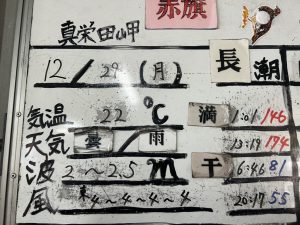 赤旗
真栄田岬
12/29(月) 長潮
気温 22℃ 満 1:01 146
天気 曇/雨 13:19 174
波 2~2.5m 干 6:46 81
風 4~4~4~4 20:17 55